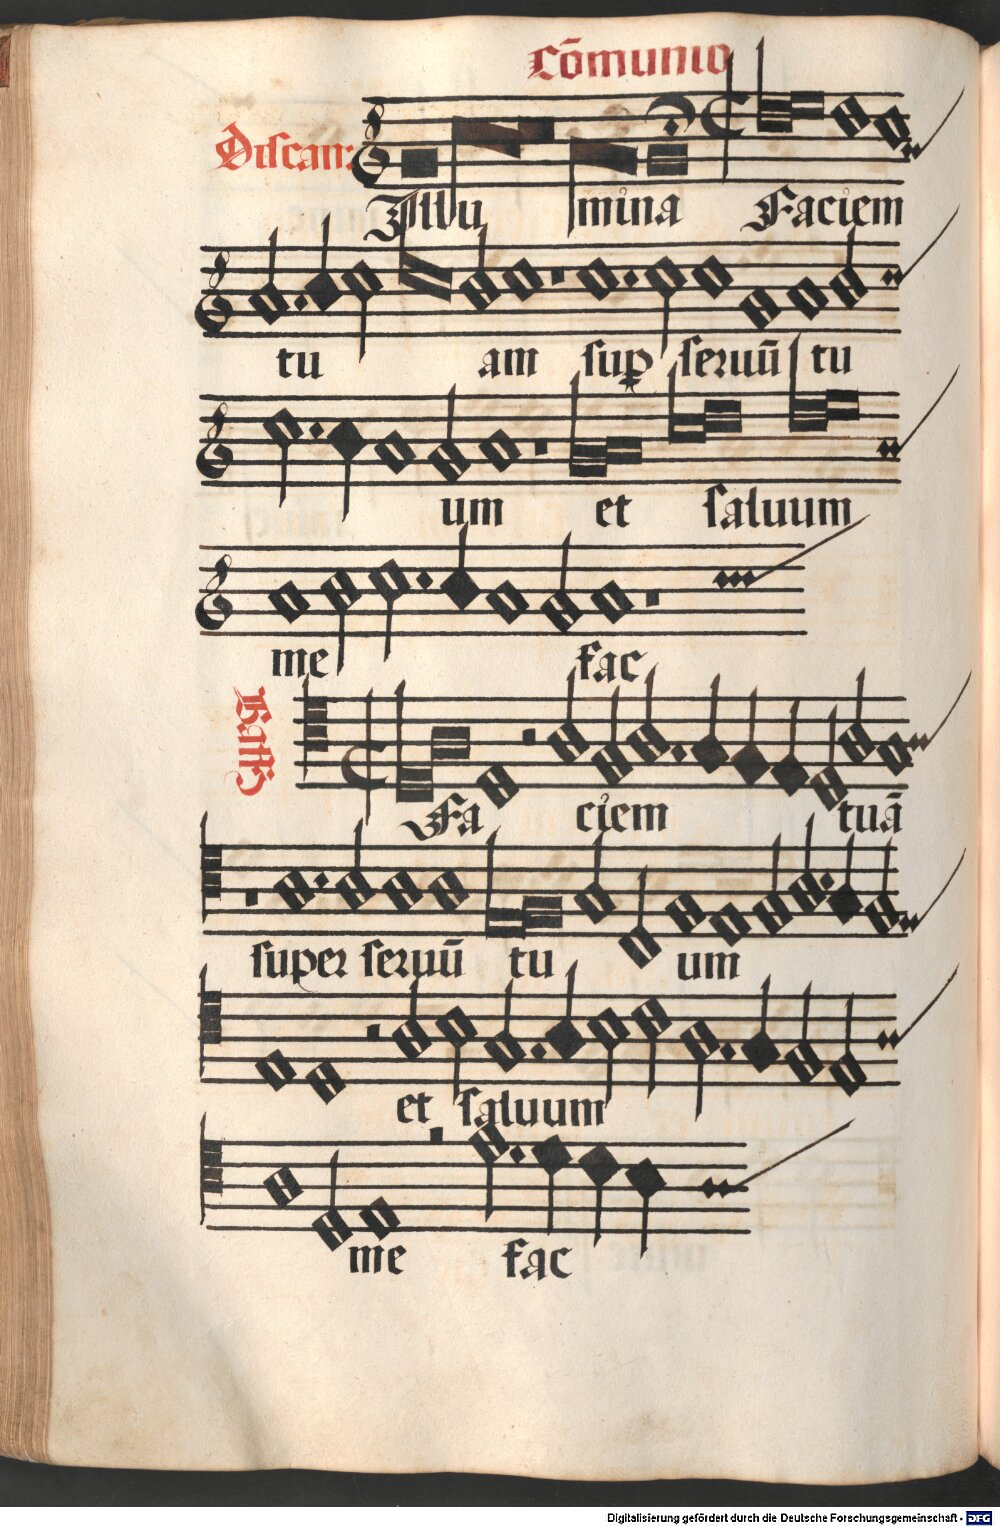 Cōmunio
Discan:
Illu mina Faciem
tu am sup seruū tu
um et saluum
me fac
Bass
Fa ciem tuā
super seruū tu um
et saluum
me fac
Digitalisierung gefördert durch die Deutsche Forschungsgemeinschaft - DFG